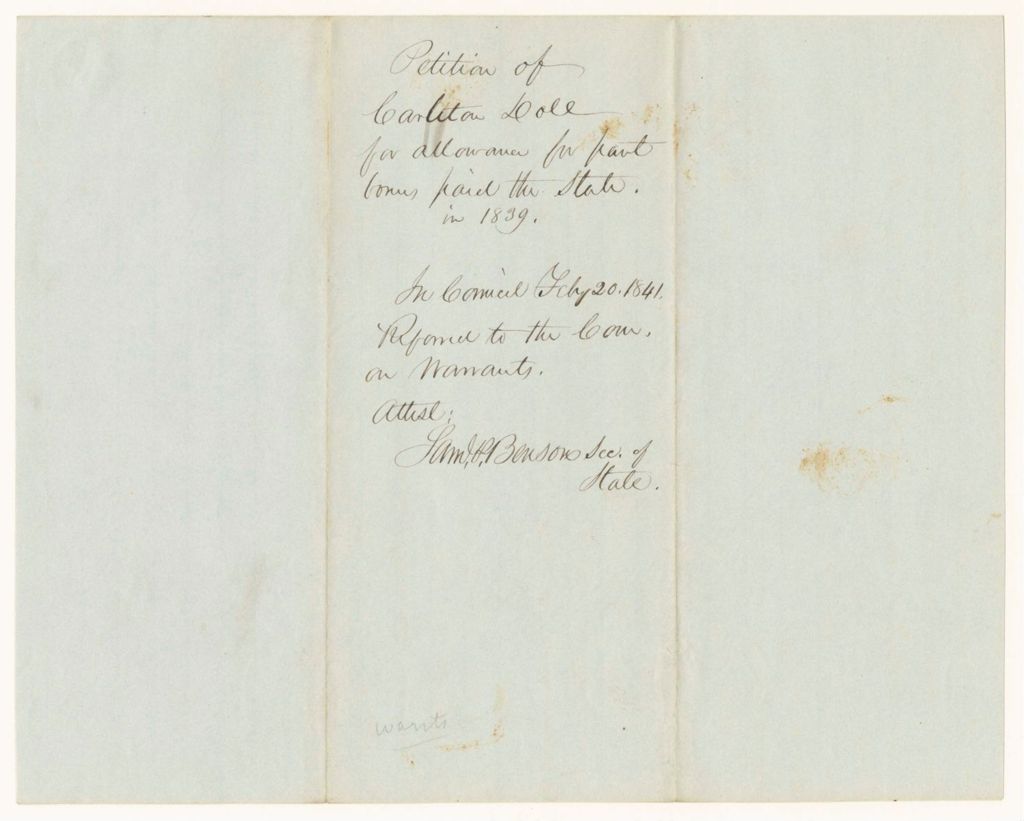 Petition of
Carleton Dole
for allowance for part
bonus paid the State.
in 1839.
In Council Feby 20. 1841.
Referred to the Com.
on Warrants.
Attest:
Saml. P. Benson Sec. of
State.
warrts